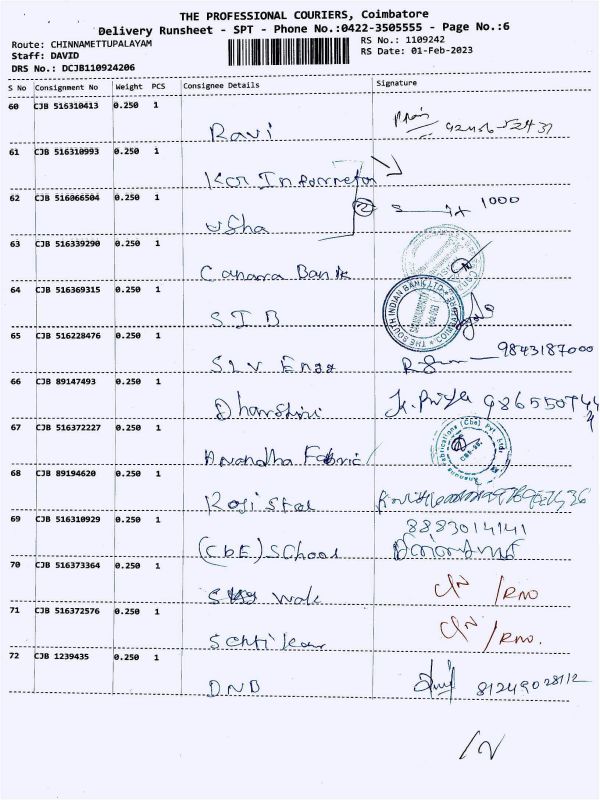 THE PROFESSIONAL COURIERS, Coimbatore
Delivery Runsheet - SPT - Phone No.:0422-3505555 - Page No.:6
Route: CHINNAMETTUPALAYAM RS No.: 1109242
Staff: DAVID RS Date: 01-Feb-2023
DRS No.: DCJB110924206
S No Consignment No Weight PCS Consignee Details Signature
60 CJB 516310413 0.250 1
Ravi
61 CJB 516310993 0.250 1
62 CJB 516066504 0.250 1
1000
Usha
63 CJB 516339290 0.250 1
Canara Bank
64 CJB 516369315 0.250 1
THE SOUTH INDIAN BANK LTD.
SIB
65 CJB 516228476 0.250 1
SLV Engg 9843187000
66 CJB 89147493 0.250 1
Dharshini K. Priya
67 CJB 516372227 0.250 1
Anandha Fabric
68 CJB 89194620 0.250 1
69 CJB 516310929 0.250 1
8883014141
(CbE) School
70 CJB 516373364 0.250 1
71 CJB 516372576 0.250 1
72 CJB 1239435 0.250 1
DNB 81249028112